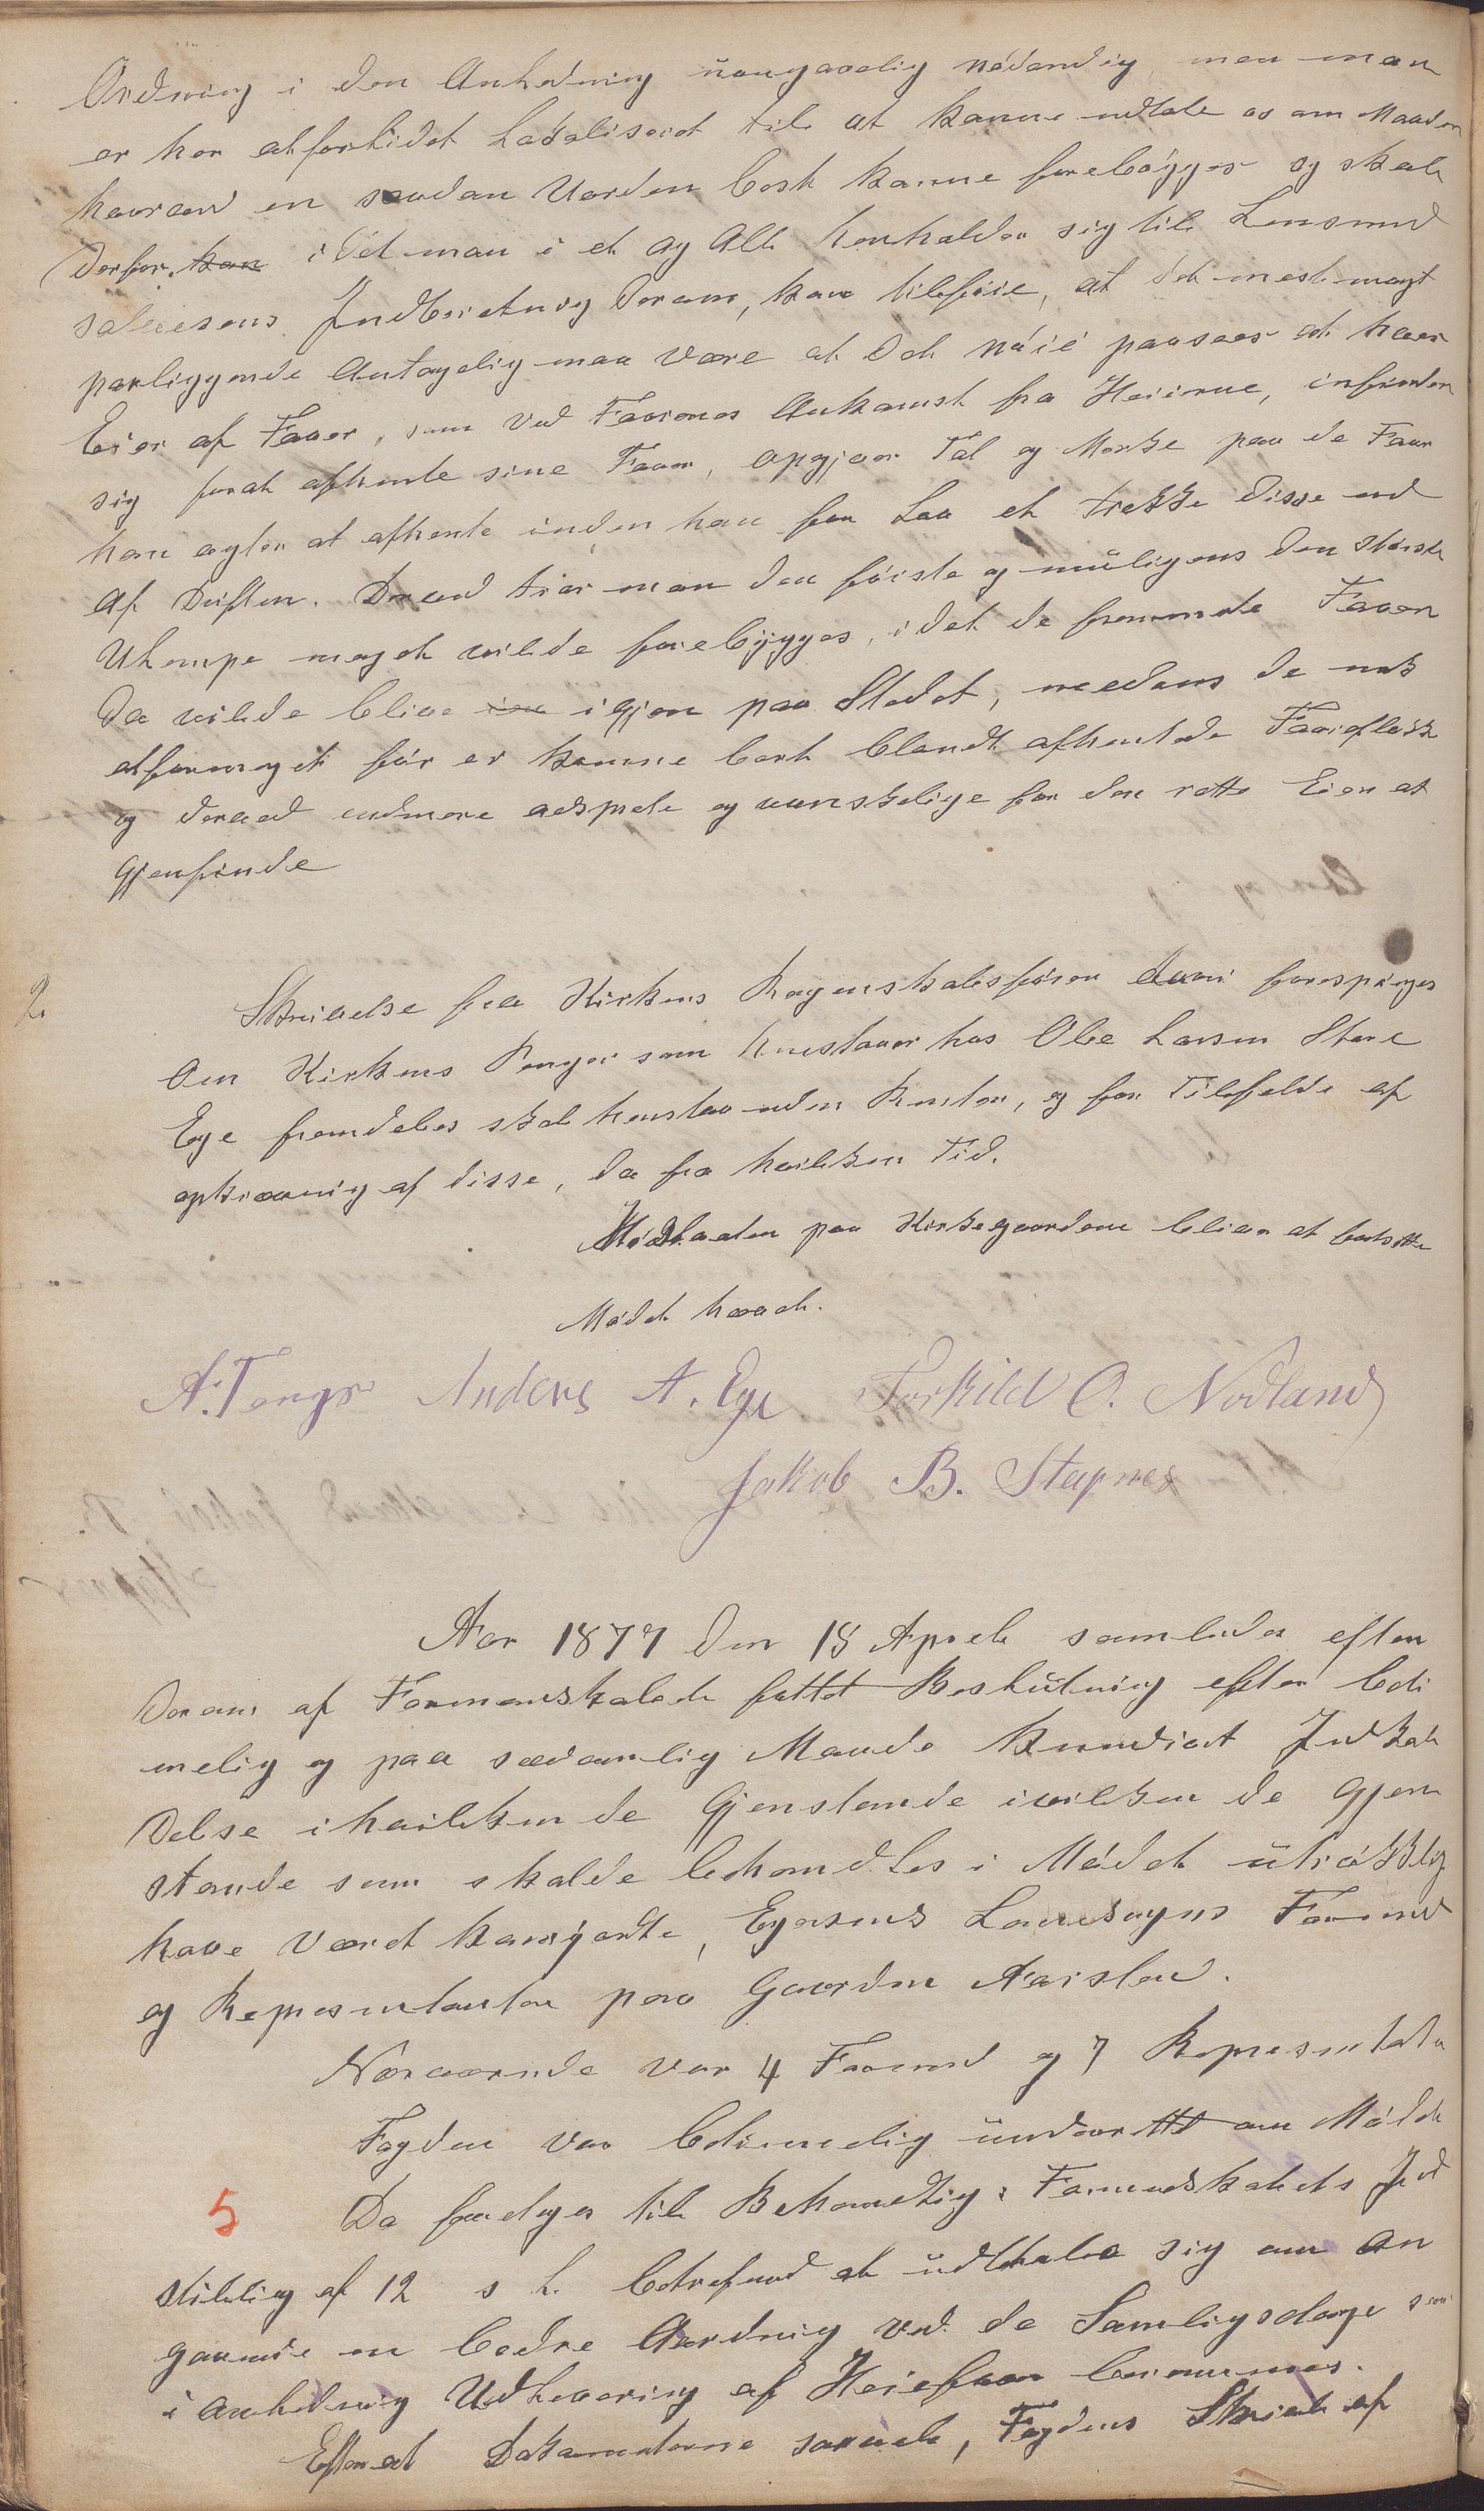 Ordning i den Anledning uomgaaelig nödvendig, men man
er her altforlidet Lokaliseret til at kunne udtale os om Maaden
hvorved en saadan Uorden best kunne forebögges og skal
derfor kan idet man i et og Alt henholder sig til Lensmd
Salvesens Indberetning derom, kun tilföie, at det mest nogt
paaliggende Antagelig maa være at det nöie paasees at hver
Eier af Faaer, som ved Faarenes Ankomst fra Heierne, infinder
sig forat afhente sine Faar, opgjver Tal og Merke paa de Faar
han agter at afhente inden han faar Lov at trekke disse ud
af Driften. Derved tror man den förste og muligens den störste
Ulempe meget vilde forebygges, idet de fremmede Faaer
da vilde blive igjen paa Stedet, medens de nok
altformeget för er komne bort blandt afhentede Faareflokk
og derved endmere adspredte og vanskelige for den rette Eier at
Gjenfinde
2. Skrivelse fra Kirkens Regnskabsförer hvori forespörges
Om Kirkens Penger som henstaaer hos Ole Larsen Store
Ege fremdeles skal henstaa uden Renter, og for Tilfelde af
opkrævning af disse, da fra hvilken Tid.
paa Kirkegaardene bliver at bortsette
Mödet hævet.
A. Tengs Anders A. Ege Torkild O. Nodland
Jakob B. Stapnes
Aar 1877 den 18 April samledes efter
derom af Formandskabet fattet Beslutning efter beti
melig og paa sædvanlig Maade kundgjort Indkal
delse i hvilken de Gjenstande i vilken de Gjen
stande som skulde behandles i Mödet utrökkelig
have været kungjordte, Egersunds Landsogns Formænd
og Representanter paa Gaarden Aarstad.
Nærværende var 4 Formend og 7 Representater
Fogden var betimelig underrettet om Mödet
5 Da foretages til Behandlig: Formendskabets Ind
stilling af 12 s h. betrefend at udtale sig om an
gaaende en bedre Ordnig ved de Samligsdage som
i anledning Udlevering af Heiefaar berammes.
Efterat Dokumenterne samt, Fogdens Skrivels af